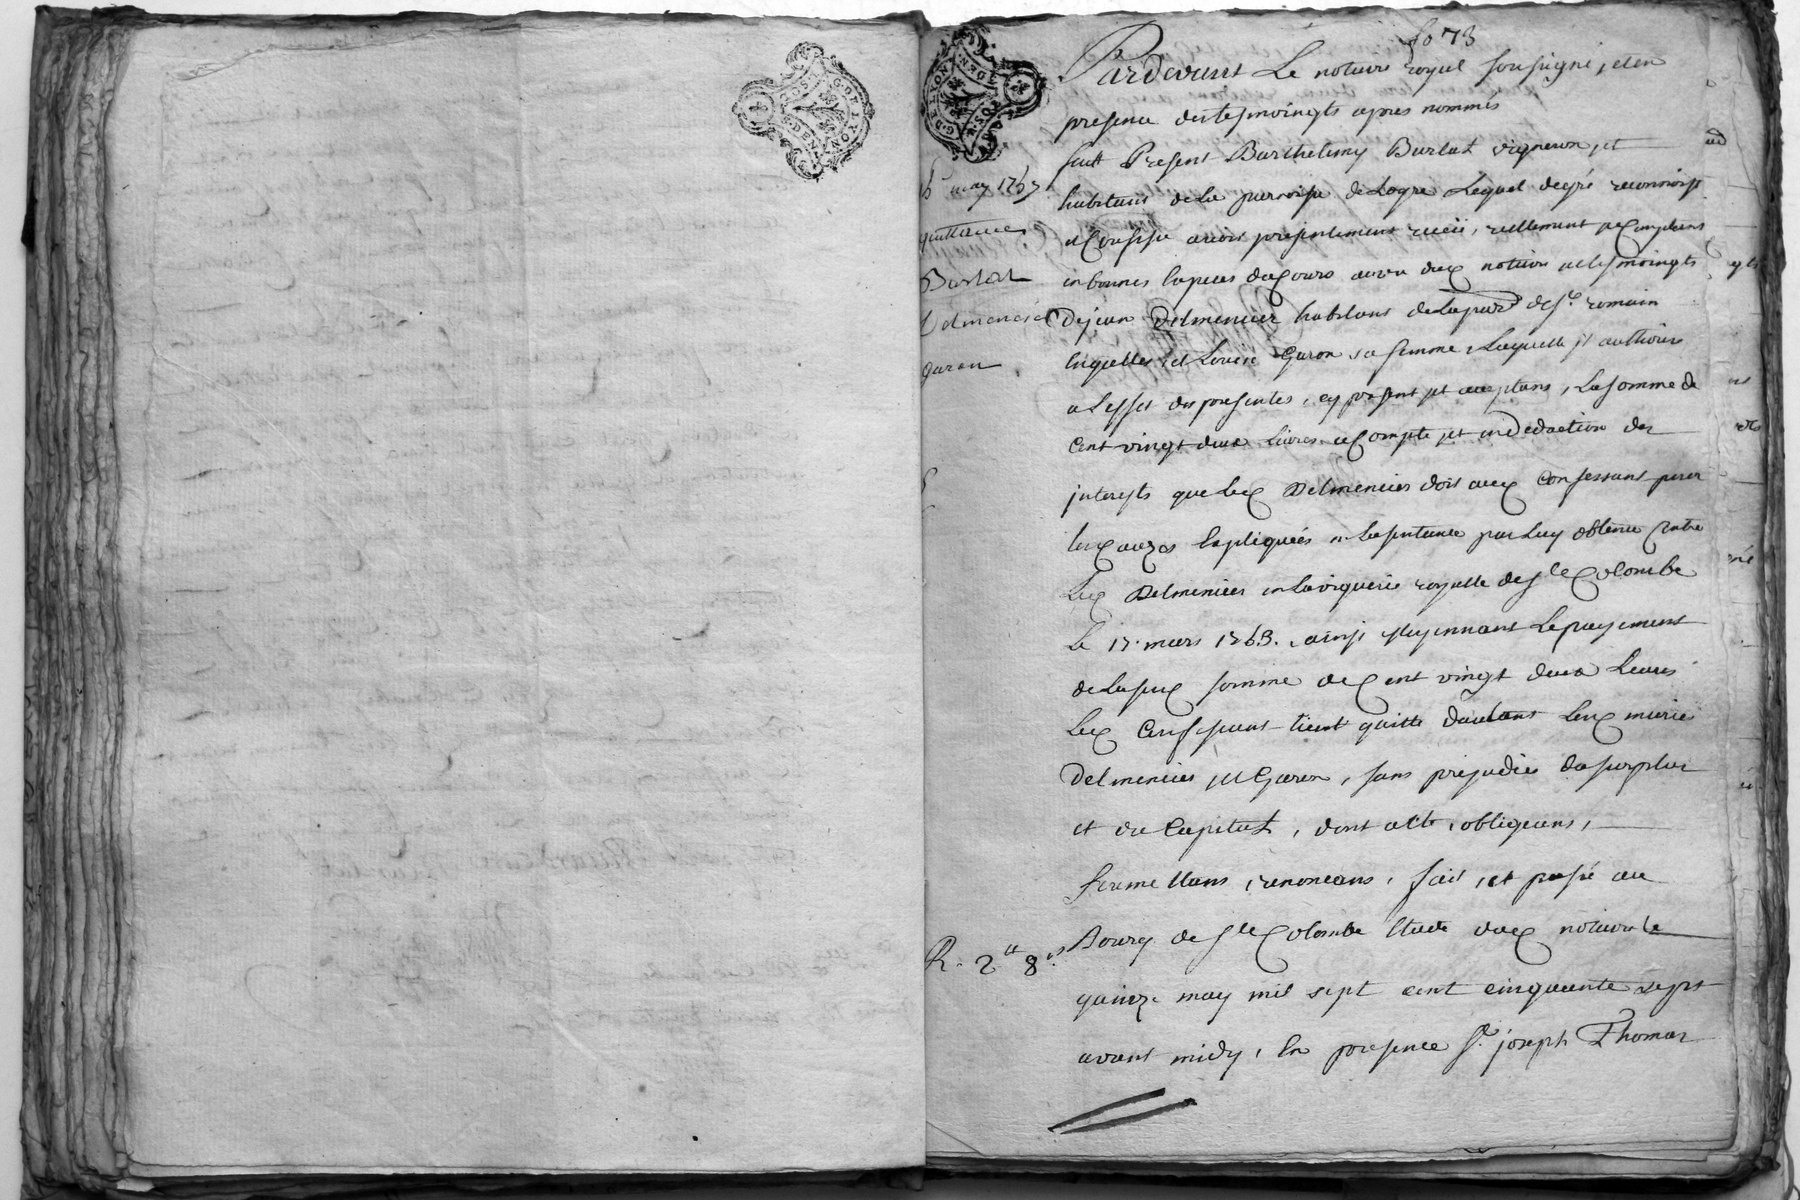 G. DE LYON
DEN. 1. 6 OS.
fo 73
Pardevant Le notaire royal soussigné, et en
presence des tesmoingts apres nommés
futt Present Barthelemy Burlat vigneron et
habitans de la parroisse de Logre Lequel de gré reconnoist
et Confesse avoir presentement receü, reellement et Comptant
en bonnes Especes de Cours au veu dud notaire et tesmoingts
de jean Delmenicier habitans de Lapar de St. romain
et Louise Garon sa femme, Laquelle il authorise
a L'effet des presentes, cy present et acceptans, La somme de
Cent vingt deux Livres a Compte et en deduction des
interests que Led Delmenicier doit aud Confessant pour
les Causes Expliquées en La sentence par Luy obtenue Contre
Led Delmenicier en La viguerie royalle de Ste Colombe
Le 17. mars 1763. ainsi Moyennant Le payement
de Lasud somme de Cent vingt deux Livres
Led Confessant tient quitte d'autant Lesd mariés
Delmenicier et Garon, sans prejudice du surplus
et du Capital, dont acte, obligeans,
soumettans, renonceans, fait, et passé au
Bourg de Ste Colombe Etude dud notaire Le
quinze may mil sept cent cinquante sept
avant midy, En presence Sr. joseph Thomas
may 1757
quittance
Burlat
Delmenicier
garon
R. 2tt 8s